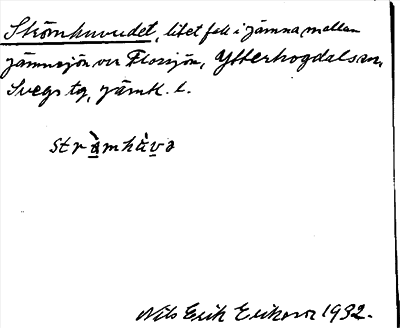 Strömhuvudet, litet fall i Jämna mellan
Jämnsjön och Flosjön, Ytterhogdals sn,
Svegs tg, Jämtl. l.
stråmhùva
Nils Erik Eriksson 1932.